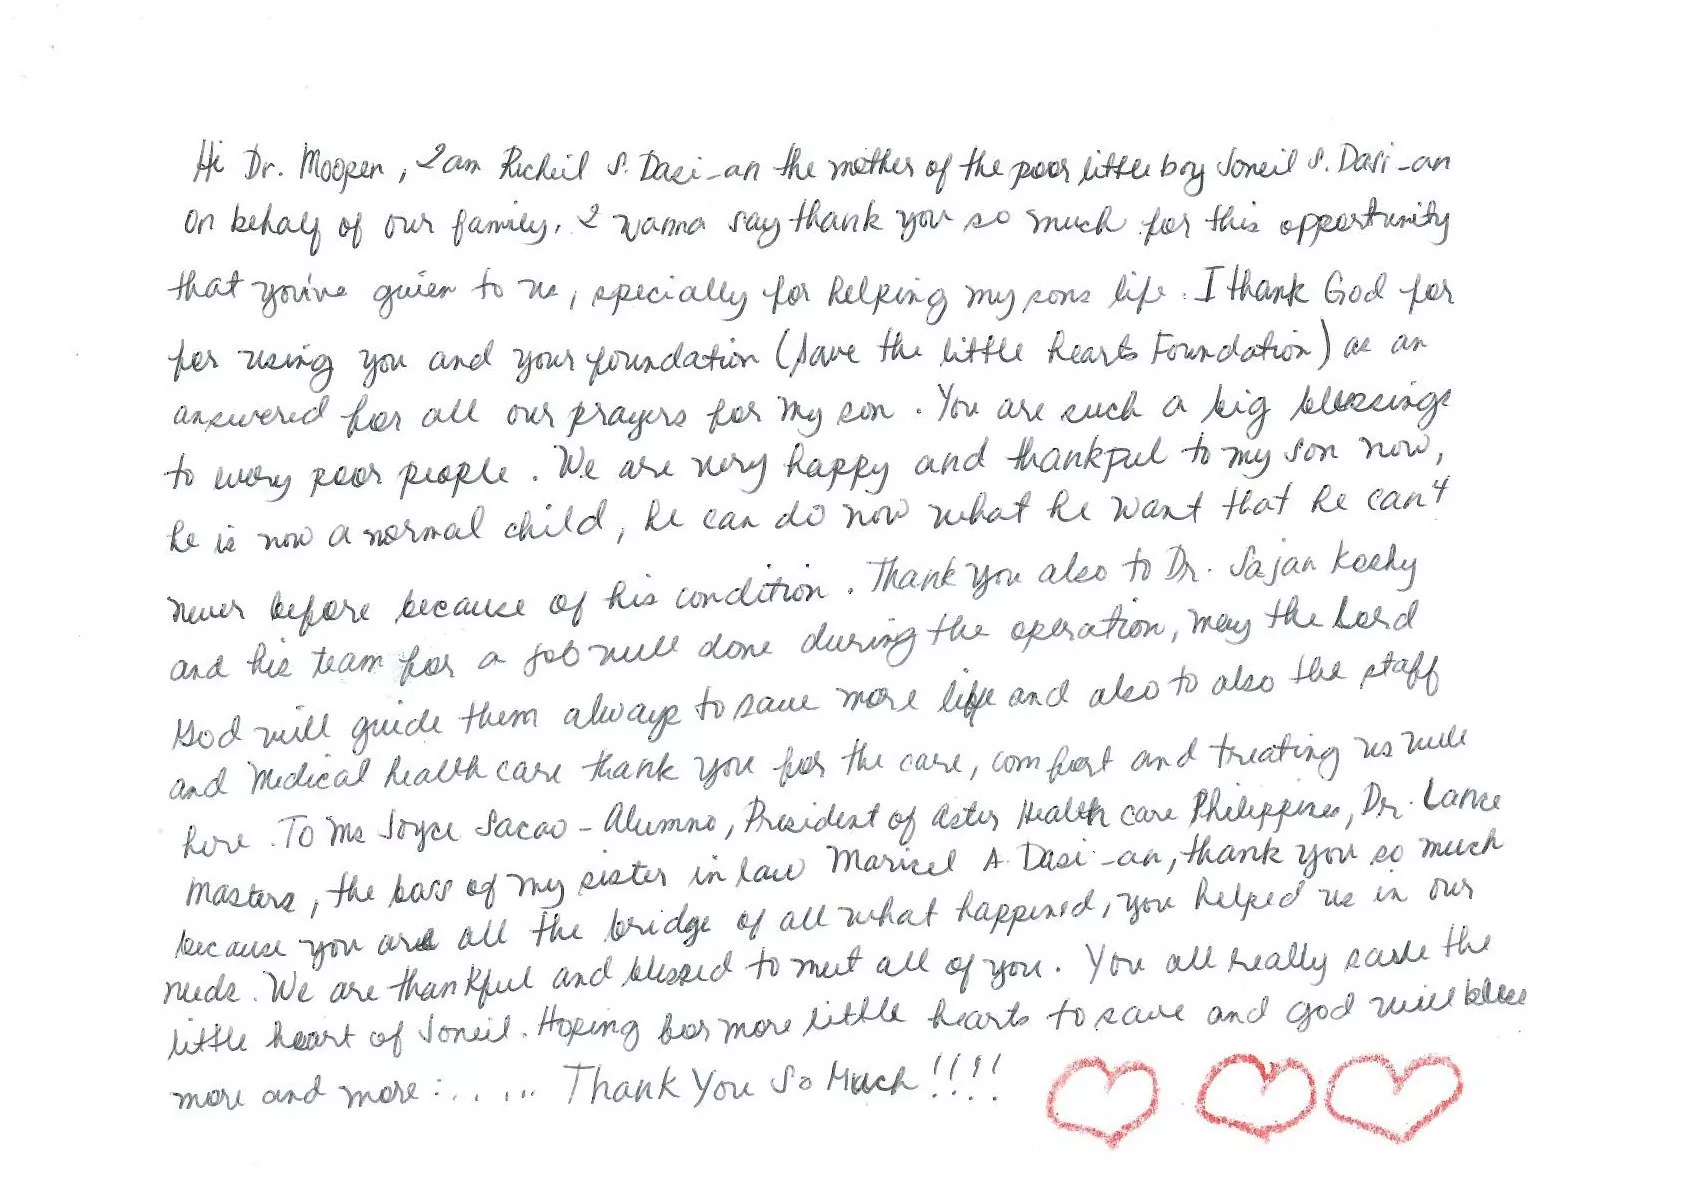 Hi Dr. Moopen, I am Richeil S. Dasi-an the mother of the poor little boy Joneil S. Dasi-an
On behalf of our family, I wanna say thank you so much for this opportunity
that you've given to us, specially for helping my sons life. I thank God for
for using you and your foundation (Save the little hearts Foundation) as an
answered for all our prayers for my son. You are such a big blessings
to every poor people. We are very happy and thankful to my son now,
he is now a normal child, he can do now what he want that he can't
never before because of his condition. Thank you also to Dr. Sajan Koshy
and his team for a job well done during the operation, may the Lord
God will guide them always to save more life and also to also the staff
and Medical health care thank you for the care, comfort and treating us well
here. To Ms Joyce Sacao-Alumno, President of Aster Health care Philippines, Dr. Lance
Masters, the boss of my sister in law Maricel A. Dasi-an, thank you so much
because you are all the bridge of all what happened, you helped us in our
needs. We are thankful and blessed to meet all of you. You all really save the
little heart of Joneil. Hoping for more little hearts to save and god will bless
more and more :..... Thank You So Much!!!!